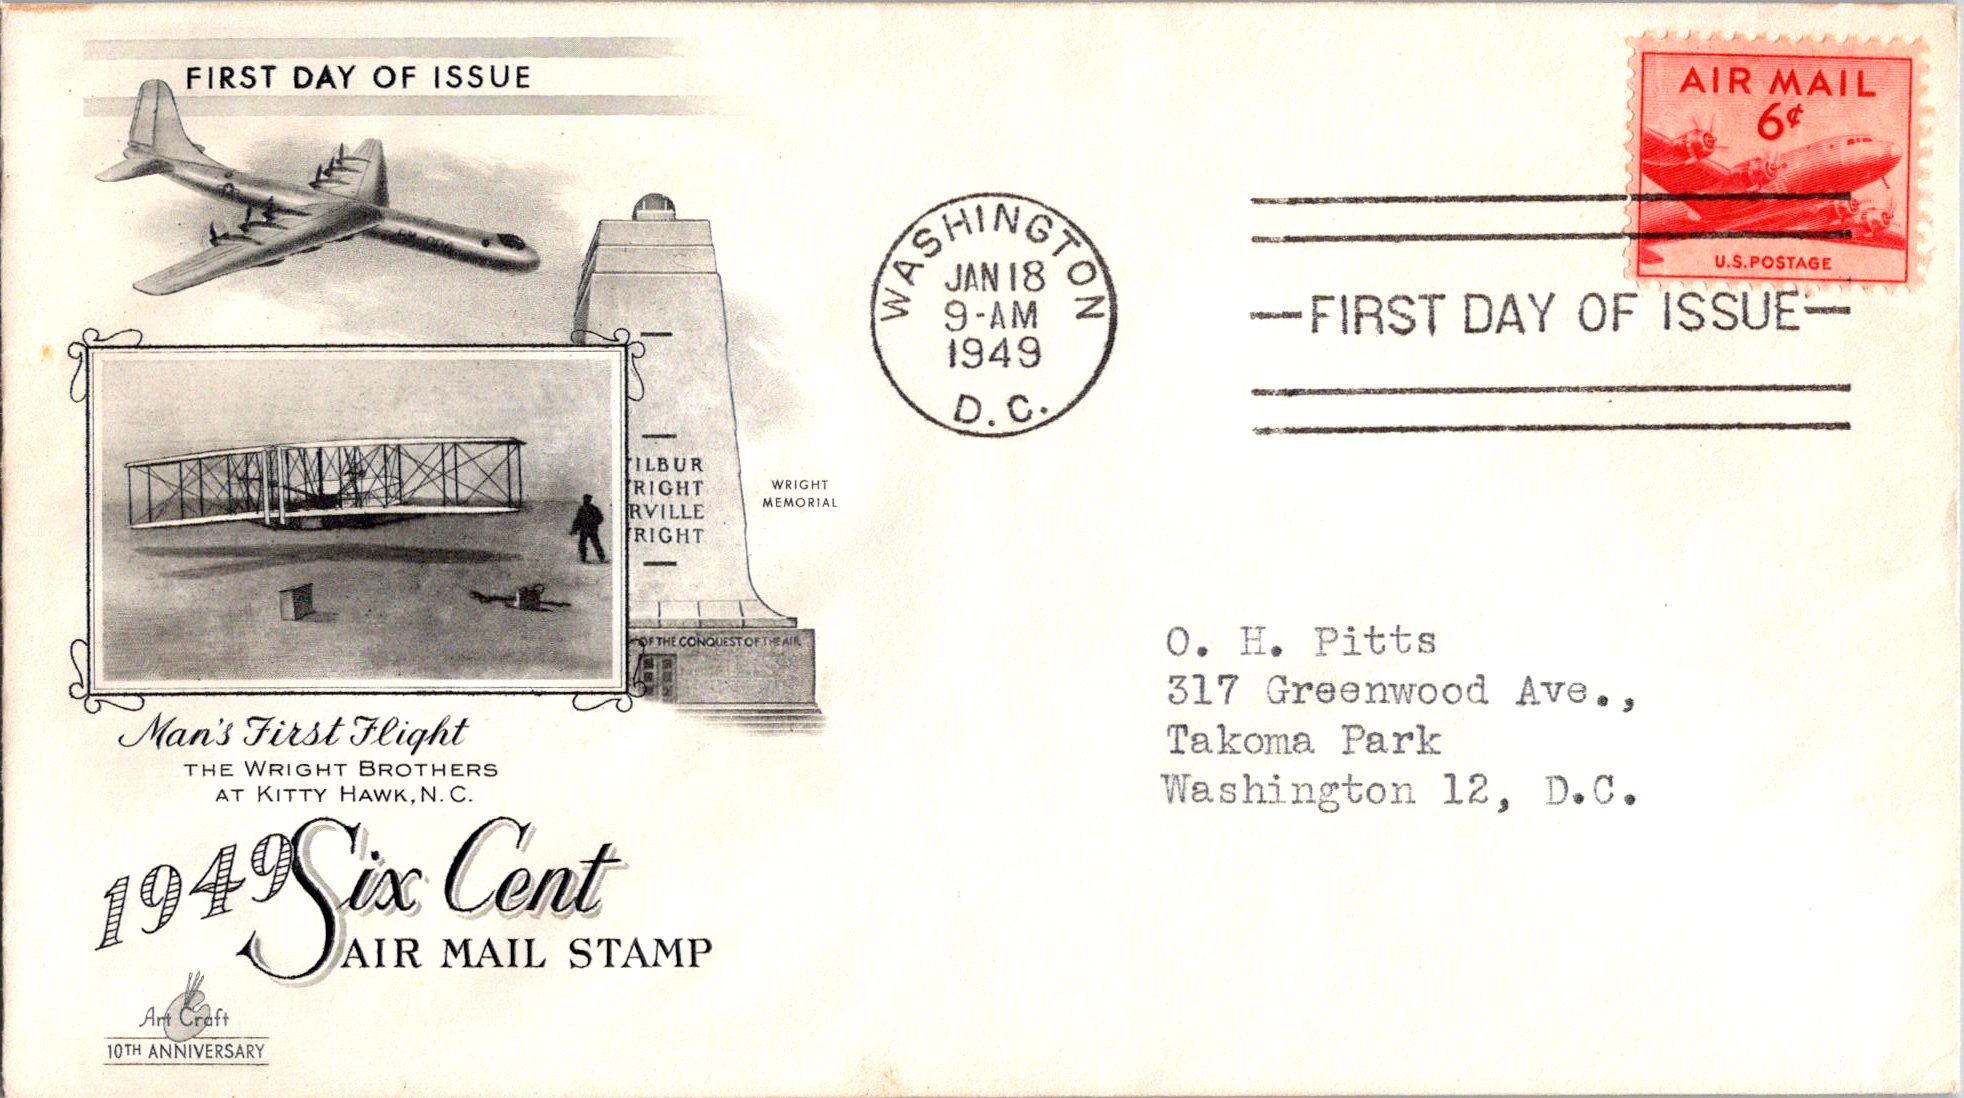 FIRST DAY OF ISSUE
AIR MAIL
6¢
U.S. POSTAGE
WASHINGTON
JAN 18
9-AM
1949
D.C.
—FIRST DAY OF ISSUE—
ILBUR
RIGHT
RVILLE
RIGHT
WRIGHT
MEMORIAL
OF THE CONQUEST OF THE AIR
Man's First Flight
THE WRIGHT BROTHERS
AT KITTY HAWK, N.C.
1949 Six Cent
AIR MAIL STAMP
Art Craft
10TH ANNIVERSARY
O. H. Pitts
317 Greenwood Ave.,
Takoma Park
Washington 12, D.C.